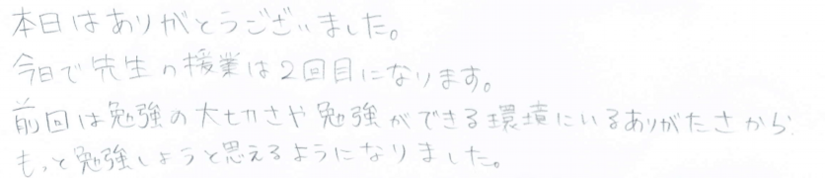 本日はありがとうございました。
今日で先生の授業は2回目になります。
前回は勉強の大切さや勉強ができる環境にいるありがたさから
もっと勉強しようと思えるようになりました。